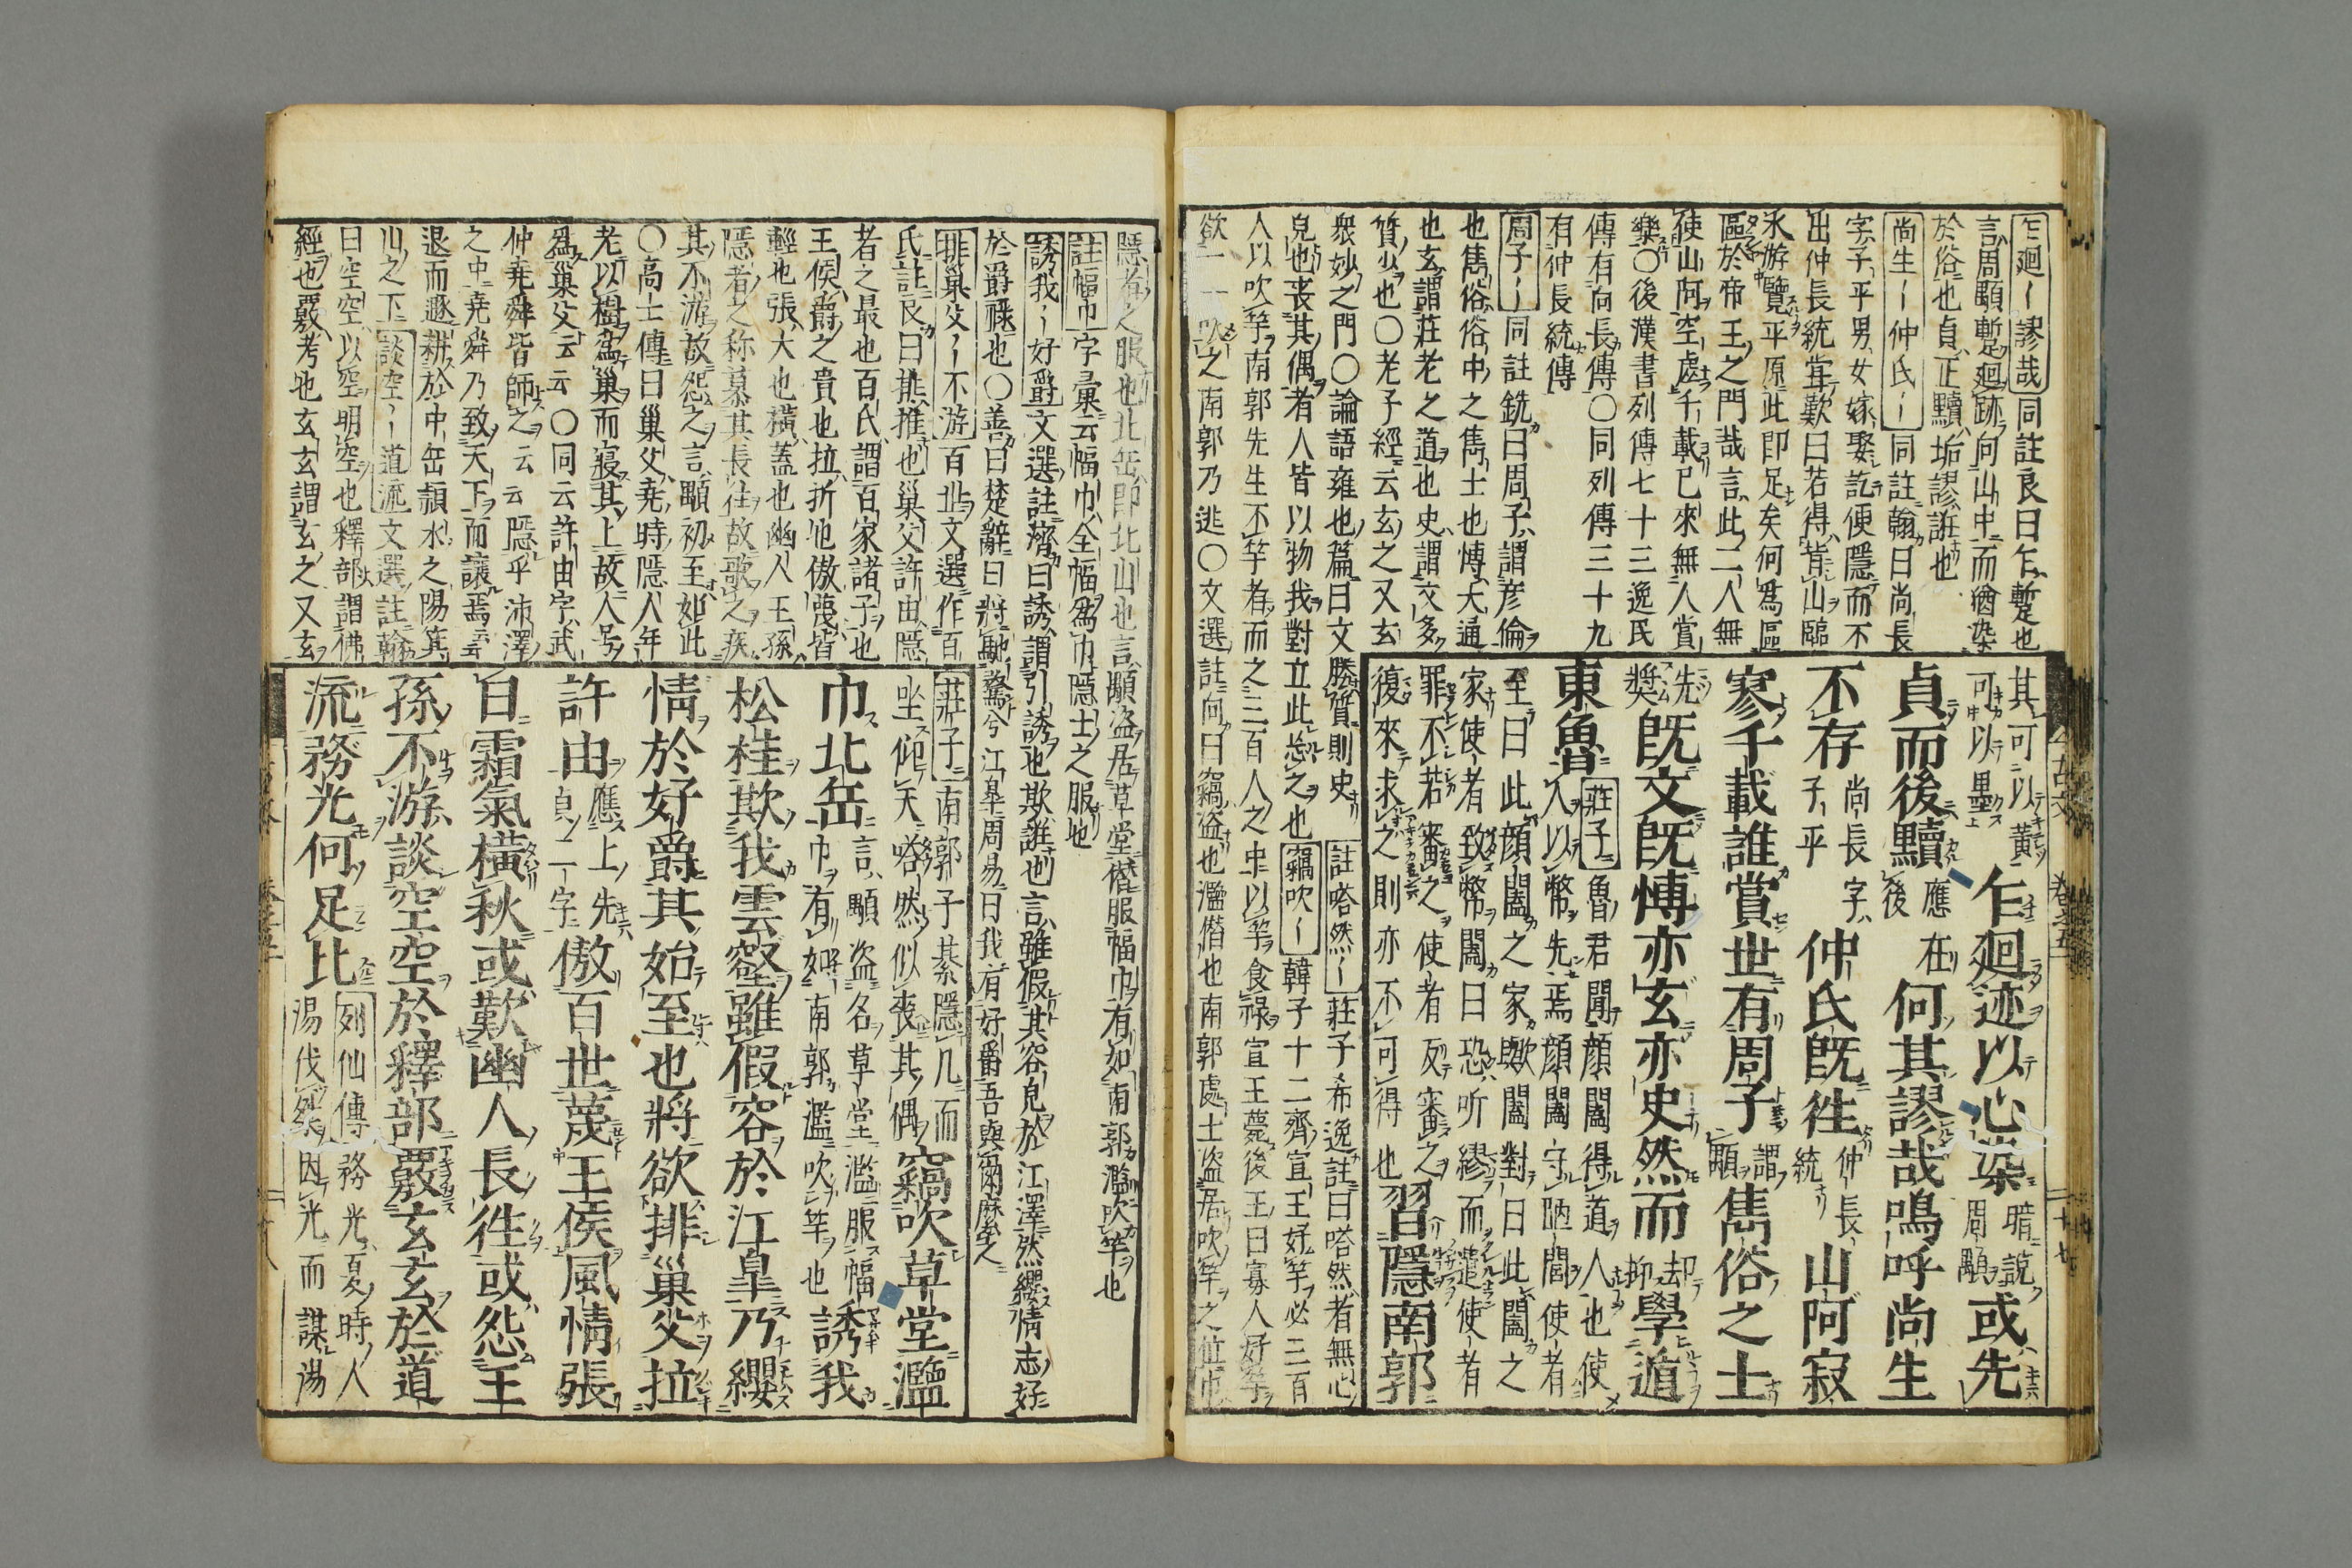 乍廻〡謬哉同註良曰乍暫也
言周顒暫廻跡向山中而猶染
於俗也貞正黷垢謬誑也
尚生〡仲氏〡同註翰曰尚長
字子平男女嫁娶訖便隱而不
出仲長統常歎曰若得背山臨
水游覽平原此即足矣何爲區
區於帝王之門哉言此二人無
使山阿空虛千載已來無人賞
樂〇後漢書列傳七十三逸民
傳有向長傳〇同列傳三十九
有仲長統傳
周子〡同註銑曰周子謂彦倫
也雋俗俗中之雋士也博大通
也玄謂莊老之道也史謂文多
質少也〇老子經云玄之又玄
衆妙之門〇論語雍也篇曰文勝質則史
註嗒然〡莊子希逸註曰嗒然者無心
皃也丧其偶者人皆以物我對立此忘之也
竊吹〡韓子十二齊宣王好竽必三百
人以吹竽南郭先生不竽者而之三百人之中以竽食祿宣王薨後王曰寡人好竽
欲一一吹之南郭乃逃〇文選註向曰竊盗也濫僭也南郭處士盗居吹竽之位也
其可以黃
可以墨
乍廻迹以心染
暗說
周顒
或先
貞而後黷
應在
後
何其謬哉嗚呼尚生
不存
尚長字
子平
仲氏旣徃
仲長
統
山阿寂
寥千載誰賞世有周子
謂
顒
雋俗之士
先
奬
旣文旣博亦玄亦史然而
却
抑
學遁
東魯
莊子魯君聞顔闔得道人也使
人以幣先焉顔闔守陋閭使者
至曰此顔闔之家歟闔對曰此闔之
家使者致幣闔曰恐听繆而遣使者
罪不若審之使者反審之
復來求之則亦不可得也
習隱南郭
隱者之服也北岳即北山也言顒盗居草堂僭服幅巾有如南郭濫吹竽也
註幅巾字彙云幅巾全幅爲巾隱士之服也
誘我〡好爵文選註濟曰誘謂引誘也欺誑也言雖假其容皃於江澤然纓情志好
於爵祿也〇善曰楚辭曰將馳騖兮江皐周易曰我有好爵吾與爾靡之
排巢父〡不游百世文選作百
氏註良曰排推也巢父許由隱
者之最也百氏謂百家諸子也
王侯爵之貴也拉折也傲蔑皆
輕也張大也橫蓋也幽人王孫
隱者之称慕其長徃故歌之疾
其不游故怨之言顒初至如此
〇高士傳曰巢父堯時隱人年
老以樹爲巢而寢其上故人号
爲巢父云云〇同云許由字武
仲堯舜皆師之云云隱乎沛澤
之中堯舜乃致天下而讓焉云云
退而遯耕於中岳頴水之陽箕
山之下談空〡〡道流文選註翰
曰空空以空明空也釋部謂佛
經也覈考也玄玄謂玄之又玄
莊子南郭子綦隱几而
坐仰天嗒然似喪其偶
竊吹草堂濫
巾北岳
言顒盗名草堂濫服幅
巾有如南郭濫吹竽也
誘我
松桂欺我雲壑雖假容於江皐乃纓
情於好爵其始至也將欲排巢父拉
許由
應上先
貞二字
傲百世蔑王侯風情張
日霜氣橫秋或歎幽人長徃或怨王
孫不游談空空於釋部覈玄玄於道
流務光何足比
列仙傳務光夏時人
湯伐桀因光而謀湯